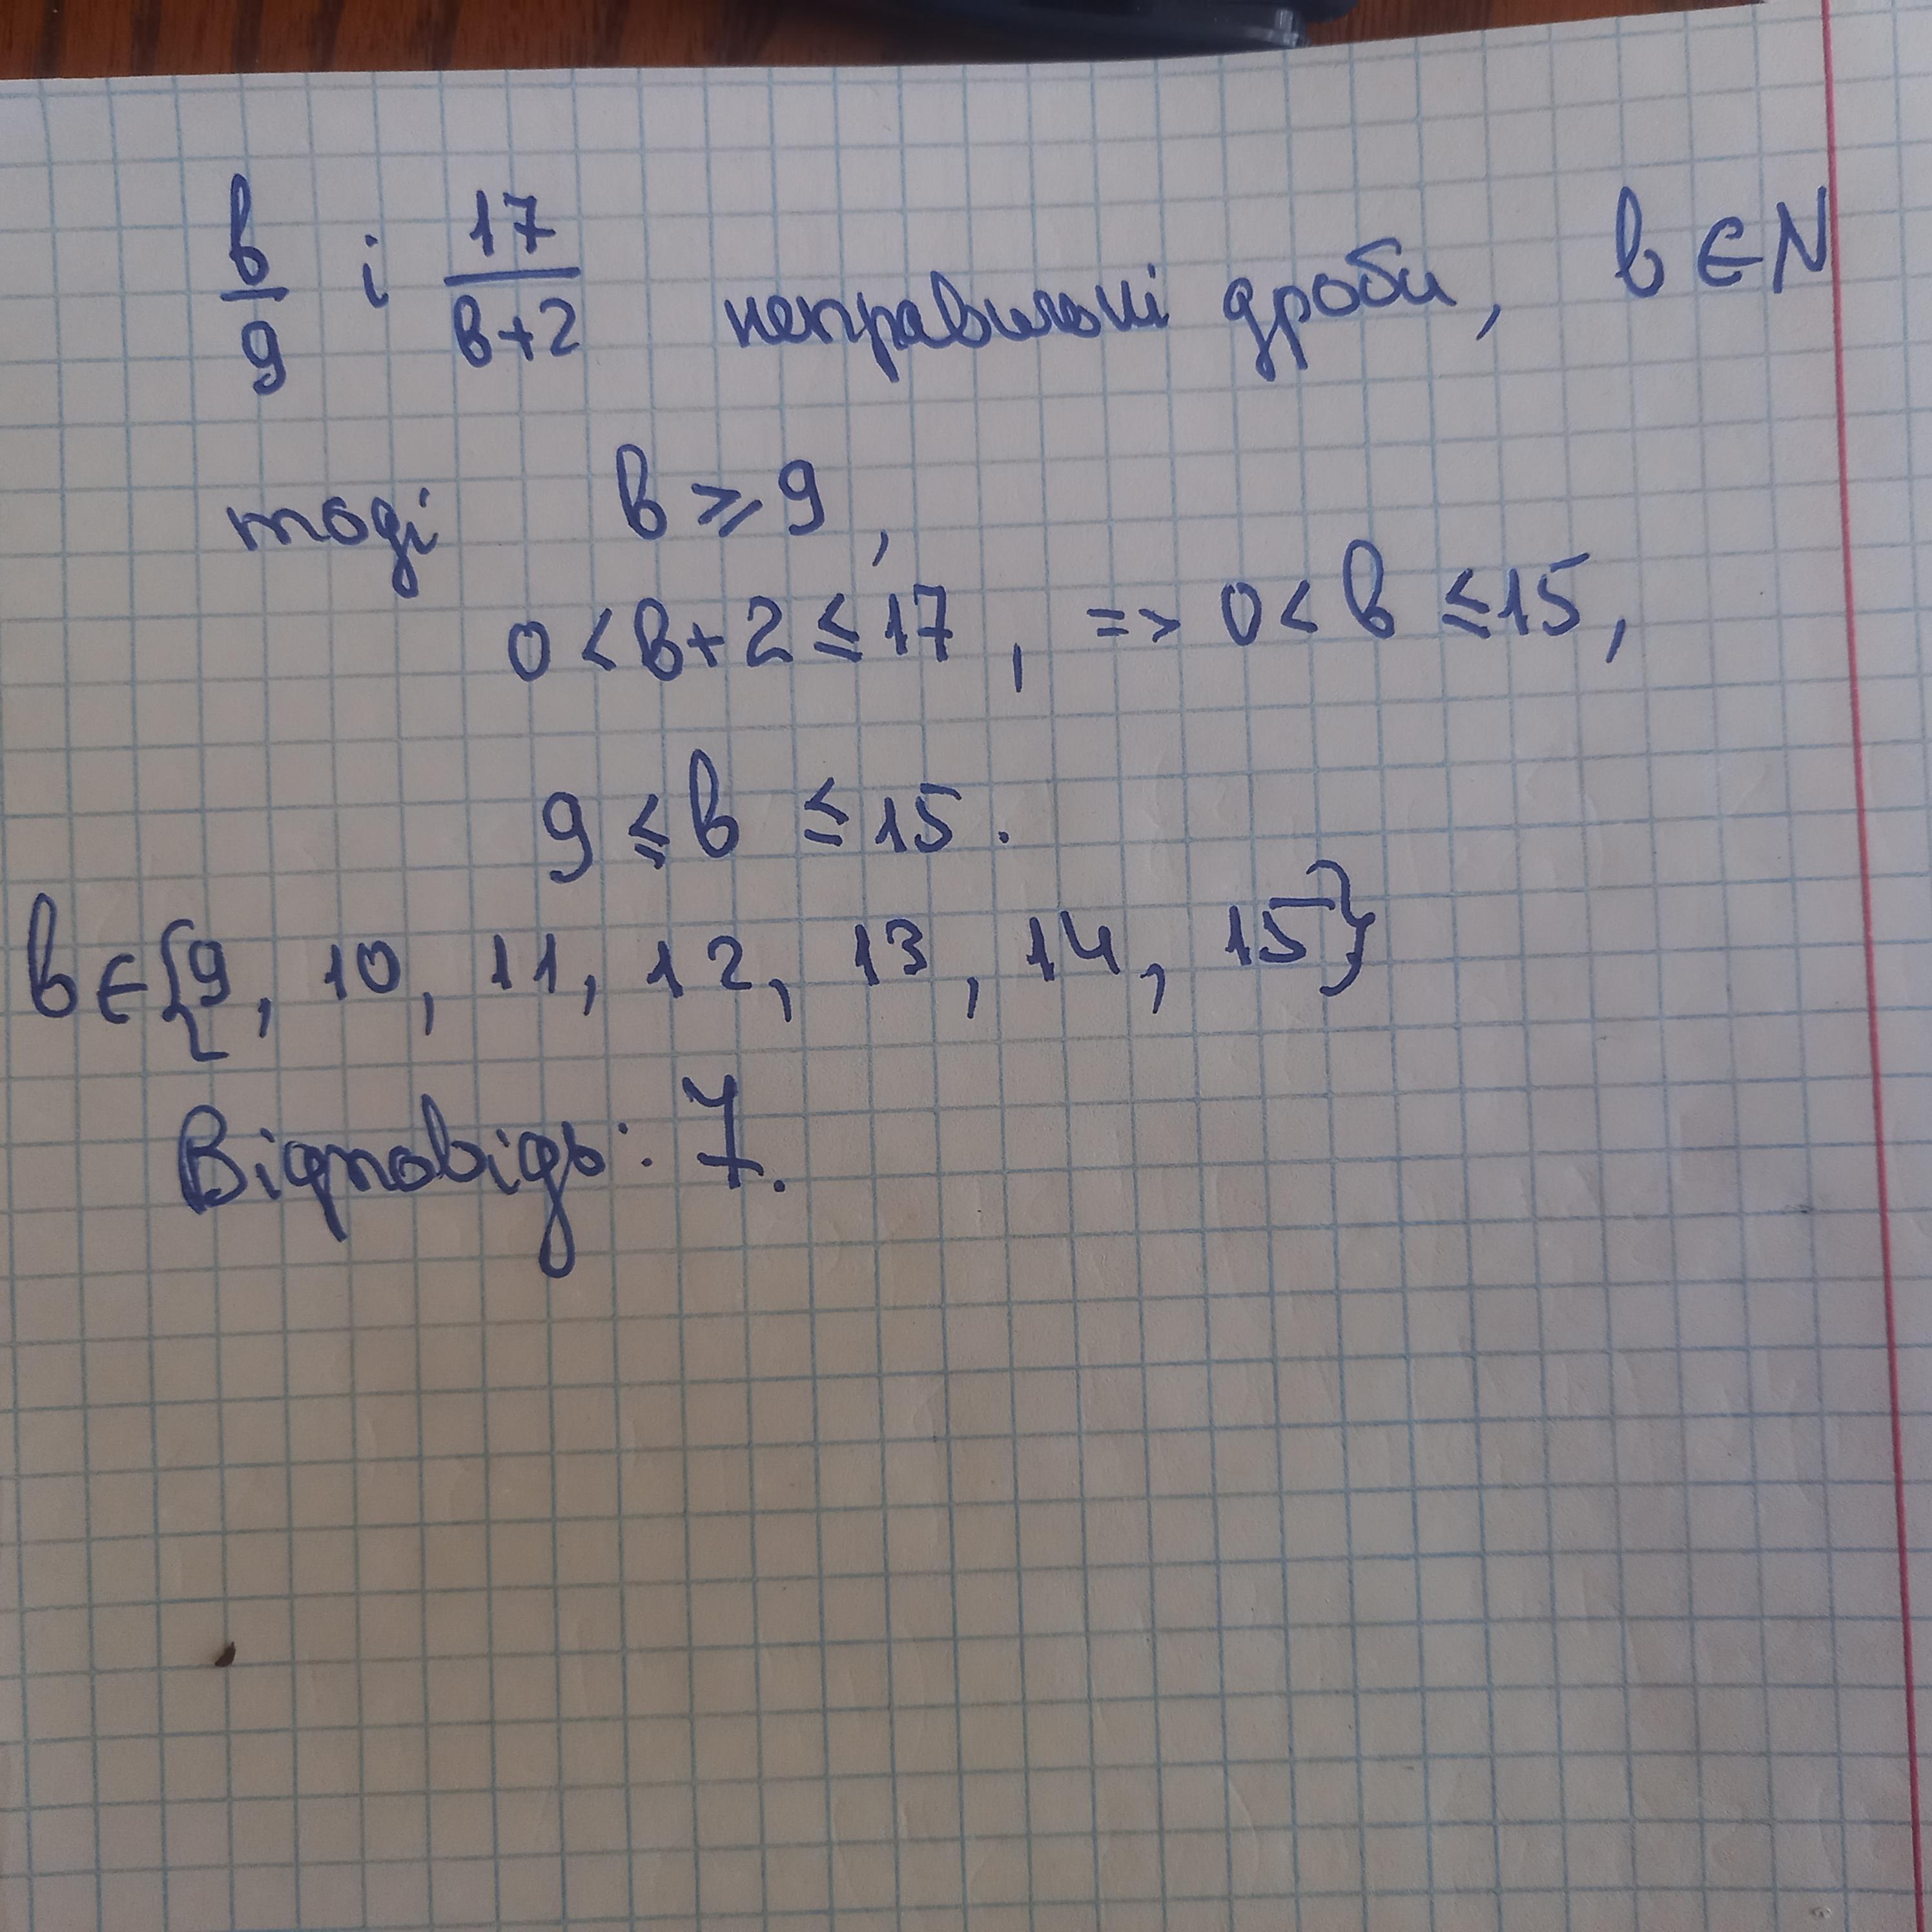 в/9 і 17/(в+2) неправильні дроби, в ∈ N
тоді в ⩾ 9,
0 < в+2 ≤ 17, => 0 < в ≤ 15,
9 ≤ в ≤ 15.
в ∈ {9, 10, 11, 12, 13, 14, 15}
Відповідь: 7.